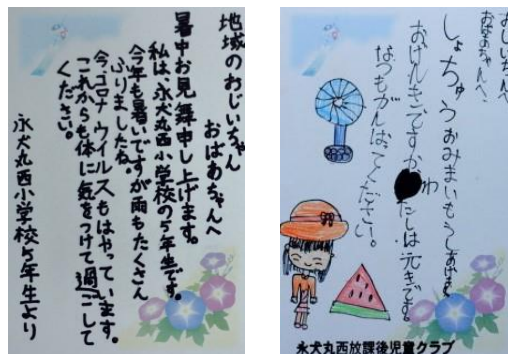 地域のおじいちゃん
おばあちゃんへ
暑中お見舞申し上げます。
私は、永犬丸西小学校の5年生です。
今年も暑いですが雨もたくさん
ふりましたね。
今、コロナウイルスもはやっています。
これからも体に気をつけて過ごして
ください。
永犬丸西小学校5年生より
おじいちゃんへ
おばあちゃんへ
しょちゅうおみまいもうしあげます
おげんきですか わたしは元きです。
なつもがんばてください。
永犬丸西放課後児童クラブ